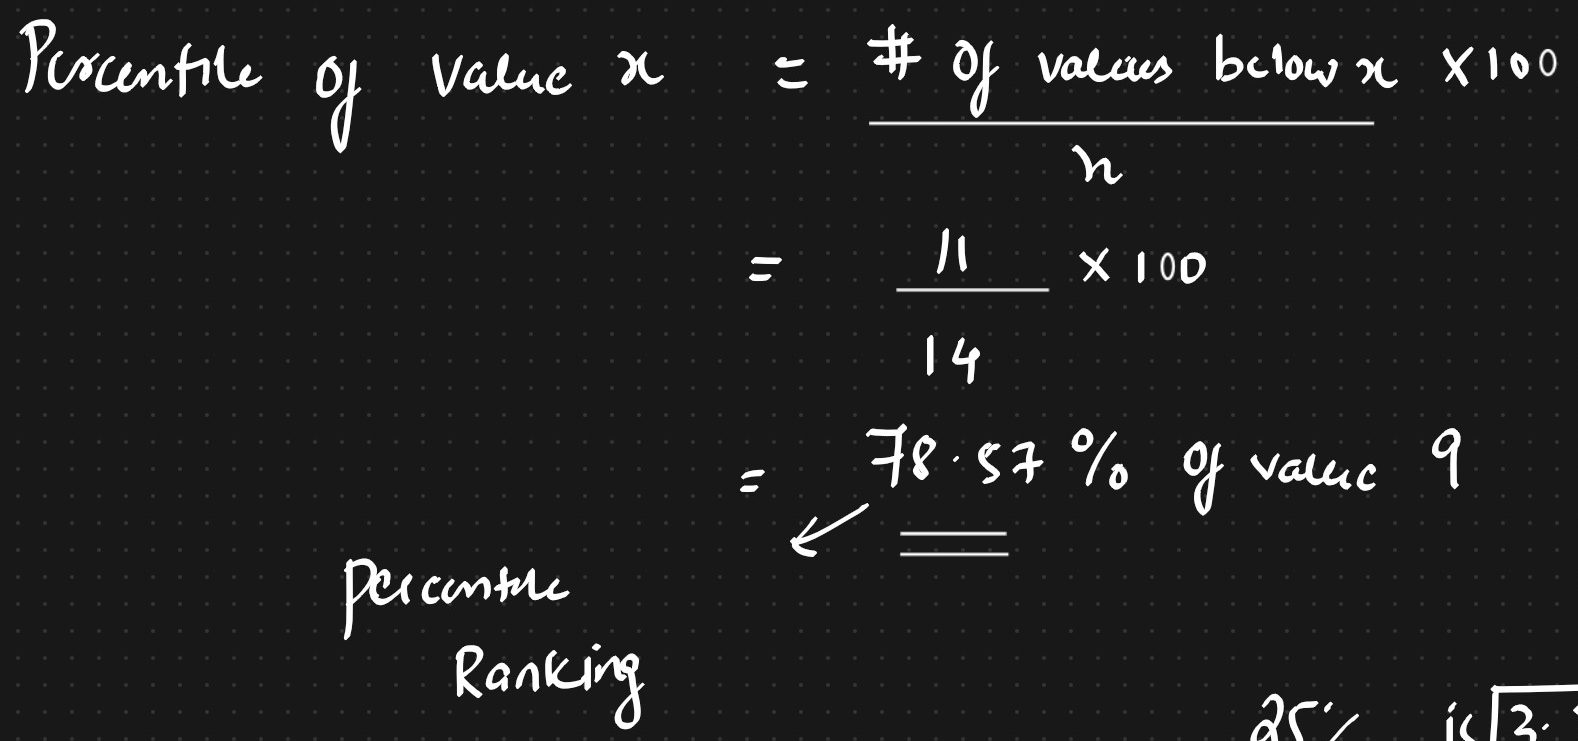 Percentile of value x = # of values below x × 100
n
= 11 × 100
14
= 78.57 % of value 9
percentile
Ranking
25% is 3.